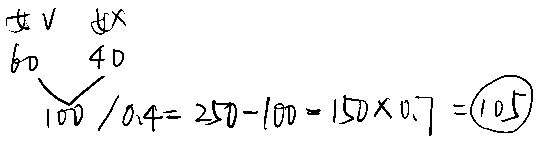 女 V 女 X
60 40
100 / 0.4 = 250 - 100 = 150 × 0.7 = 105